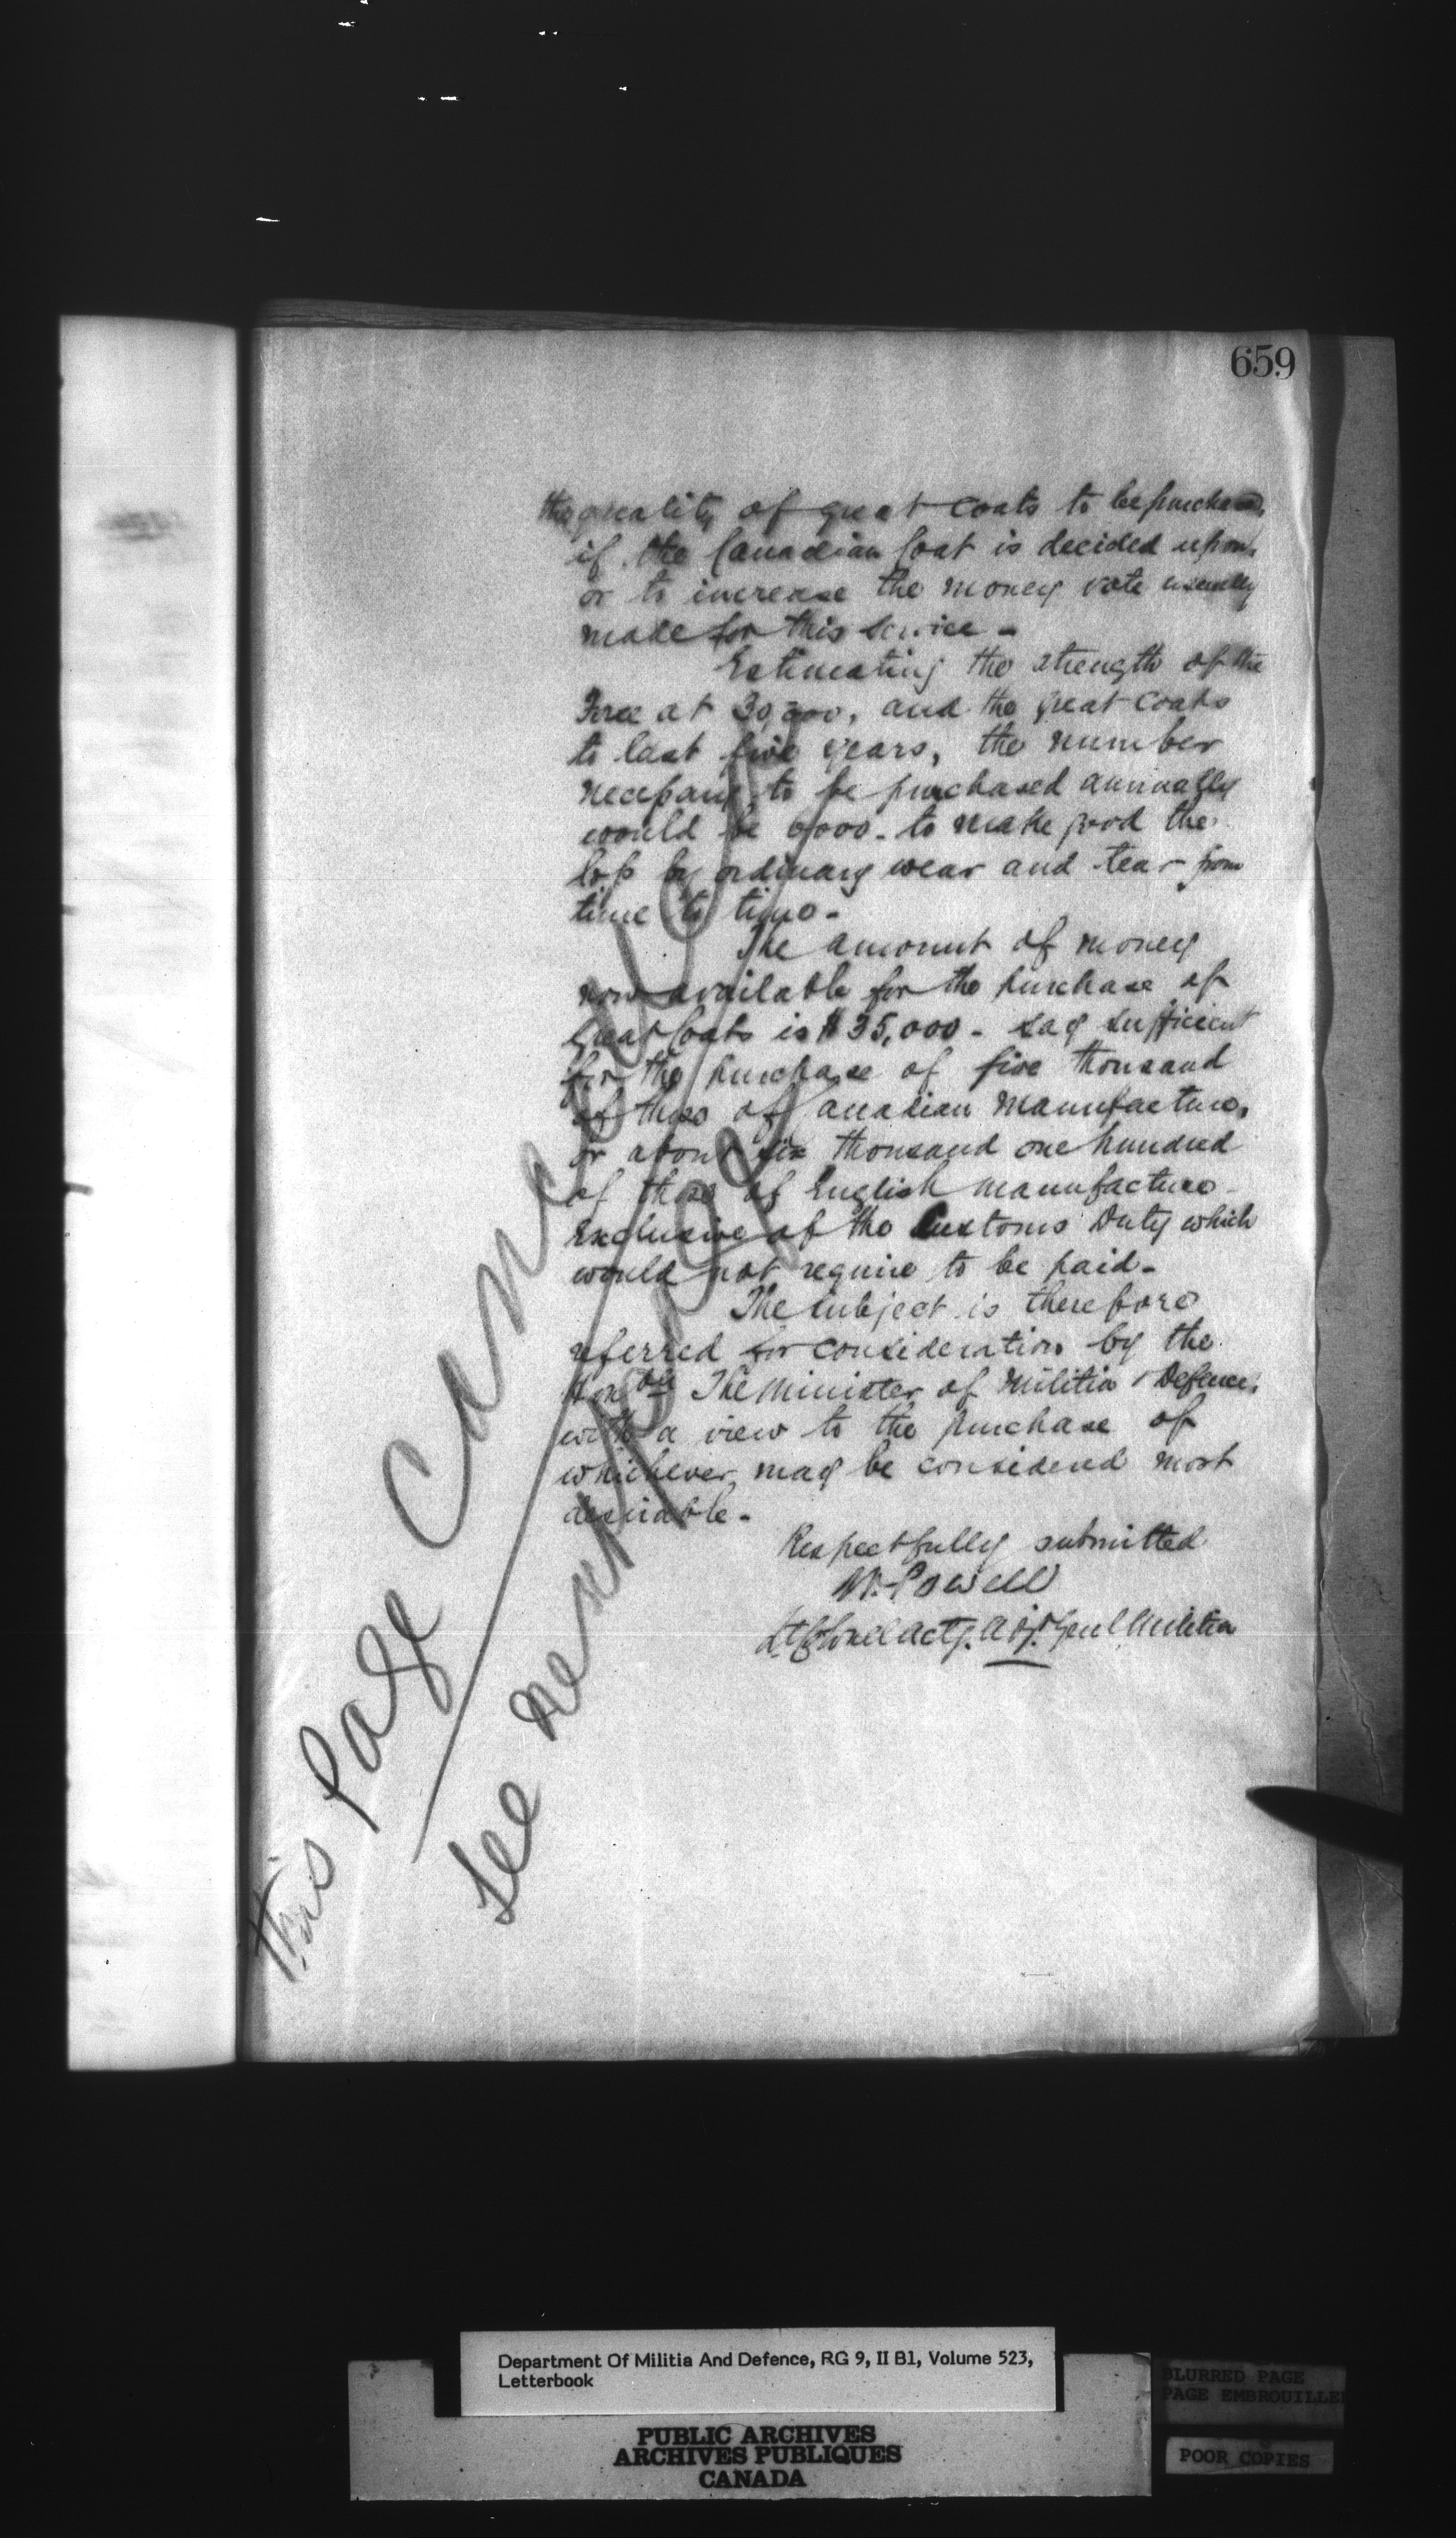 659
the quality of great coats to be purchased,
if the Canadian Coat is decided upon,
or to increase the money vote usually
made for this service -
Estimating the strength of the
Force at 30,000, and the great coats
to last five years, the number
necessary to be purchased annually
would be 6000 - to make good the
loss by ordinary wear and tear from
time to time -
The amount of money
now available for the purchase of
Great Coats is $35,000 - say sufficient
for the purchase of five thousand
of those of Canadian Manufacture,
or about six thousand one hundred
of those of English manufacture -
exclusive of the Customs Duty which
would not require to be paid -
The subject is therefore
referred for consideration by the
Honble The Minister of Militia & Defence,
with a view to the purchase of
whichever may be considered most
desirable -
Respectfully submitted
W. Powell
Lt Colonel Actg. Adjt. Genl Militia
This Page Cancelled
See next page
Department Of Militia And Defence, RG 9, II B1, Volume 523,
Letterbook
PUBLIC ARCHIVES
ARCHIVES PUBLIQUES
CANADA
BLURRED PAGE
PAGE EMBROUILLEE
POOR COPIES